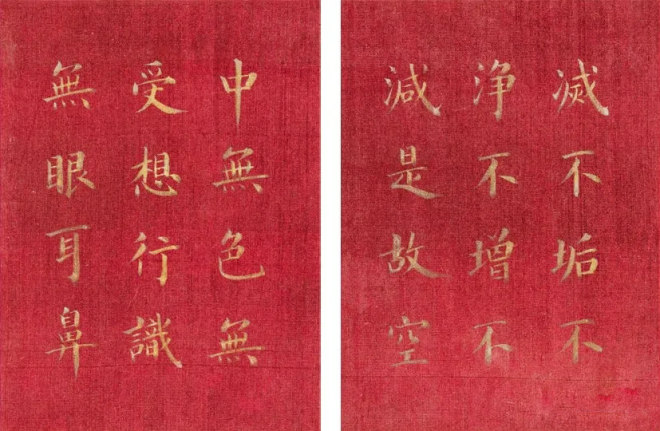 滅不垢不
淨不增不
減是故空
中無色無
受想行識
無眼耳鼻